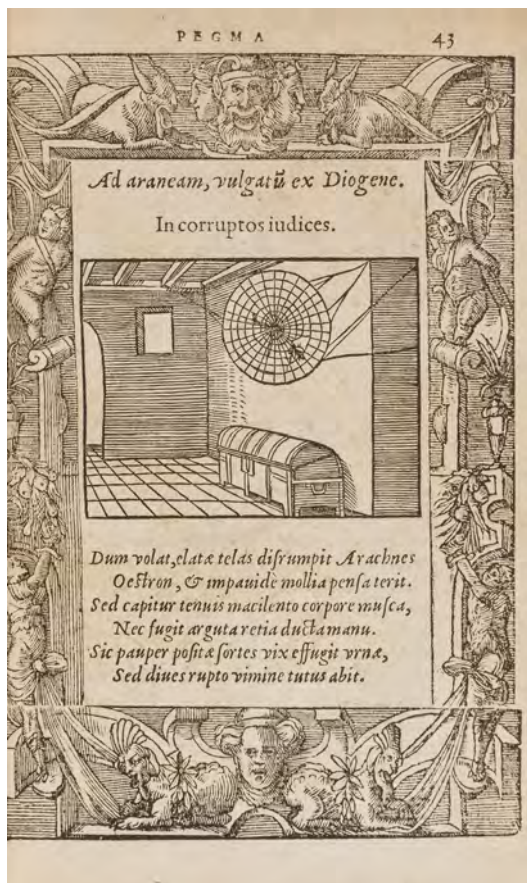 PEGMA 43
Ad araneam, vulgatũ ex Diogene.
In corruptos iudices.
Dum volat, elatæ telas diſrumpit Arachnes
Oeſtron, & impauidè mollia penſa terit.
Sed capitur tenuis macilento corpore muſca,
Nec fugit arguta retia ducta manu.
Sic pauper poſitæ ſortes vix effugit vrnæ,
Sed diues rupto vimine tutus abit.